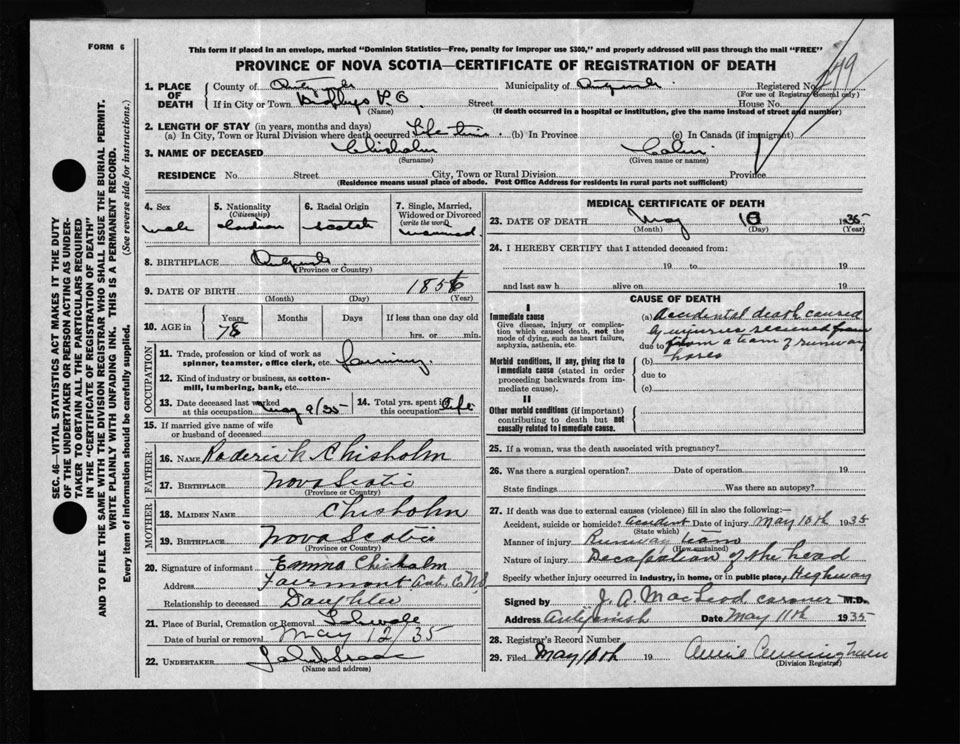 FORM 6
This form if placed in an envelope, marked "Dominion Statistics—Free, penalty for improper use $300," and properly addressed will pass through the mail "FREE"
PROVINCE OF NOVA SCOTIA—CERTIFICATE OF REGISTRATION OF DEATH
SEC. 46—VITAL STATISTICS ACT MAKES IT THE DUTY
OF THE UNDERTAKER OR PERSON ACTING AS UNDER-
TAKER TO OBTAIN ALL THE PARTICULARS REQUIRED
IN THE "CERTIFICATE OF REGISTRATION OF DEATH"
AND TO FILE THE SAME WITH THE DIVISION REGISTRAR WHO SHALL ISSUE THE BURIAL PERMIT.
WRITE PLAINLY WITH UNFADING INK. THIS IS A PERMANENT RECORD.
Every item of information should be carefully supplied. (See reverse side for instructions.)
1. PLACE OF DEATH
County of Municipality of Registered No.
(For use of Registrar General only)
If in City or Town P.O. Street House No.
(Name) (If death occurred in a hospital or institution, give the name instead of street and number)
2. LENGTH OF STAY (in years, months and days)
(a) In City, Town or Rural Division where death occurred Life time (b) In Province (c) In Canada (if immigrant)
3. NAME OF DECEASED Chisholm Colin
(Surname) (Given name or names)
RESIDENCE No. Street City, Town or Rural Division Province
(Residence means usual place of abode. Post Office Address for residents in rural parts not sufficient)
4. Sex male
5. Nationality (Citizenship) Canadian
6. Racial Origin Scotch
7. Single, Married, Widowed or Divorced (write the word)
8. BIRTHPLACE
(Province or Country)
9. DATE OF BIRTH 1856
(Month) (Day) (Year)
10. AGE in Years Months Days If less than one day old
78 hrs. or min.
OCCUPATION
11. Trade, profession or kind of work as spinner, teamster, office clerk, etc. farming
12. Kind of industry or business, as cotton-mill, lumbering, bank, etc.
13. Date deceased last worked at this occupation May 9/35
14. Total yrs. spent in this occupation Life
15. If married give name of wife or husband of deceased
FATHER
16. NAME Roderick Chisholm
17. BIRTHPLACE Nova Scotia
(Province or Country)
MOTHER
18. MAIDEN NAME Chisholm
19. BIRTHPLACE Nova Scotia
(Province or Country)
20. Signature of informant Emma Chisholm
Address Fairmont Ant. Co. N.S.
Relationship to deceased Daughter
21. Place of Burial, Cremation or Removal
Date of burial or removal May 12/35
22. UNDERTAKER
(Name and address)
MEDICAL CERTIFICATE OF DEATH
23. DATE OF DEATH May 10 1935
(Month) (Day) (Year)
24. I HEREBY CERTIFY that I attended deceased from:
19 to 19
and last saw h alive on 19
CAUSE OF DEATH
I
Immediate cause
Give disease, injury or complication which caused death, not the mode of dying, such as heart failure, asphyxia, asthenia, etc.
(a) Accidental death caused
by injuries received from
due to from a team of runway
horses
Morbid conditions, if any, giving rise to immediate cause (stated in order proceeding backwards from immediate cause).
(b)
due to
(c)
II
Other morbid conditions (if important) contributing to death but not causally related to immediate cause.
25. If a woman, was the death associated with pregnancy?
26. Was there a surgical operation? Date of operation 19
State findings Was there an autopsy?
27. If death was due to external causes (violence) fill in also the following:—
Accident, suicide or homicide? accident Date of injury May 10th 1935
(State which)
Manner of injury Runway team
(How sustained)
Nature of injury of the head
Specify whether injury occurred in industry, in home, or in public place, Highway
Signed by J. A. MacLeod coroner M.D.
Address Antigonish Date May 11th 1935
28. Registrar's Record Number
29. Filed May 10th 19 Annie Cunningham
(Division Registrar)